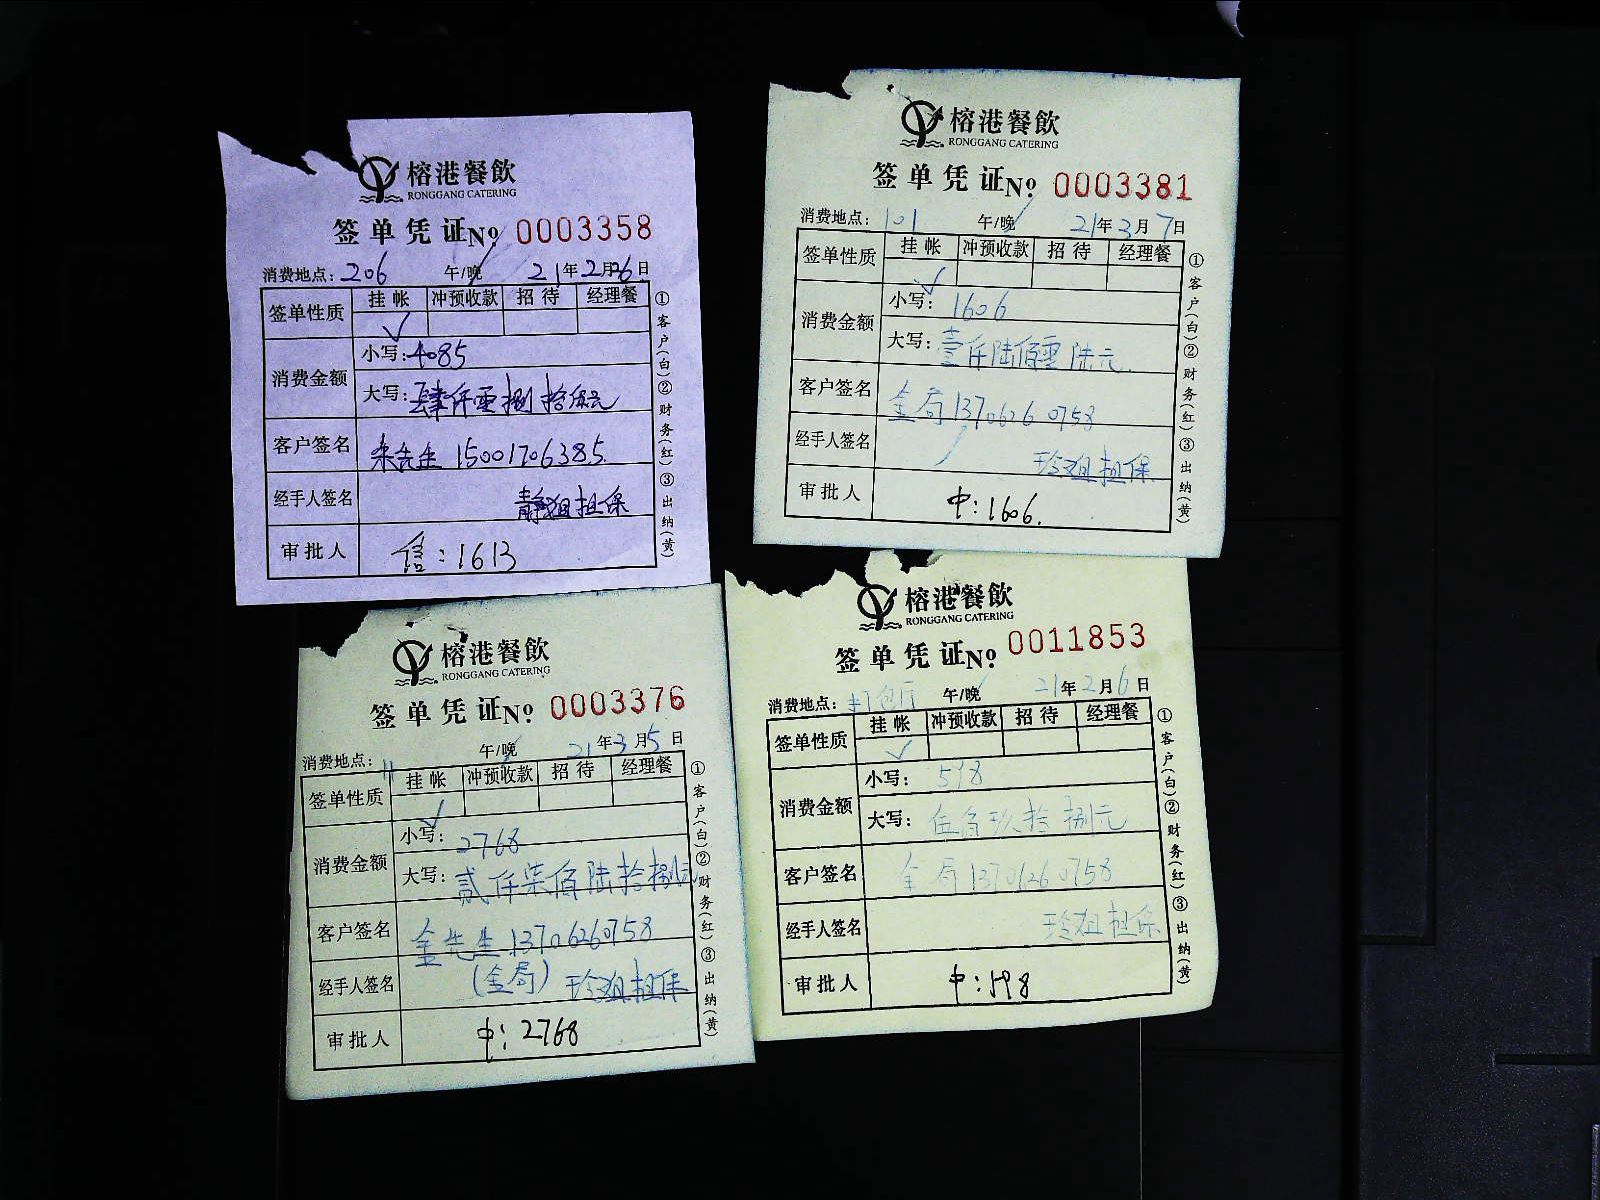 榕港餐飲
RONGGANG CATERING
签单凭证№ 0003358
消费地点：206 午/晚 21年2月26日
签单性质 挂帐 冲预收款 招待 经理餐
✓
消费金额 小写：4085
大写：肆仟零捌拾伍元
客户签名 朱先生 15001706385.
经手人签名 静姐担保
审批人 信：1613
①客户（白）②财务（红）③出纳（黄）
榕港餐飲
RONGGANG CATERING
签单凭证№ 0003381
消费地点：101 午/晚 21年3月7日
签单性质 挂帐 冲预收款 招待 经理餐
✓
消费金额 小写：1606
大写：壹仟陆佰零陆元
客户签名 金局 13706260758
经手人签名 玲姐担保
审批人 中：1606.
①客户（白）②财务（红）③出纳（黄）
榕港餐飲
RONGGANG CATERING
签单凭证№ 0003376
消费地点： 午/晚 21年3月5日
签单性质 挂帐 冲预收款 招待 经理餐
✓
消费金额 小写：2768
大写：贰仟柒佰陆拾捌元
客户签名 金先生 13706260758
经手人签名 （金局） 玲姐担保
审批人 中：2768
①客户（白）②财务（红）③出纳（黄）
榕港餐飲
RONGGANG CATERING
签单凭证№ 0011853
消费地点： 午/晚 21年2月6日
签单性质 挂帐 冲预收款 招待 经理餐
✓
消费金额 小写：598
大写：伍佰玖拾捌元
客户签名 金局 13706260758
经手人签名 玲姐担保
审批人 中：598
①客户（白）②财务（红）③出纳（黄）